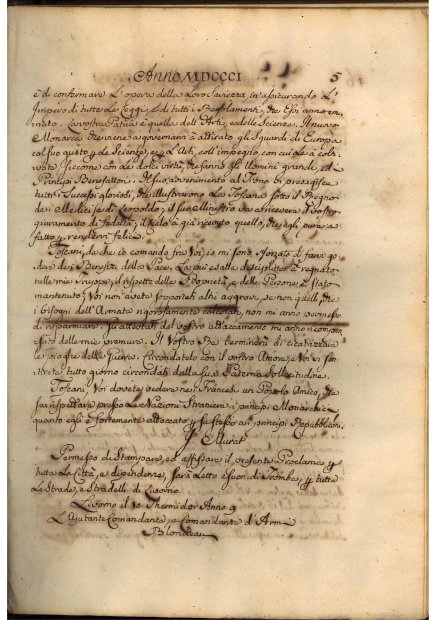 Anno MDCCCI 5
è di confermare L'opera della Loro Saviezza, in assicurando L'
Impero di tutte Le Leggi, e di tutti i Regolamenti, che Essi anno ema
nato. La vostra Patria è quella dell'Arti, e delle Scienze. Il nuovo
Monarca che viene a governarvi à attirato gli Sguardi di Europa
col suo gusto p. le Scienze, e p. L'Arti, coll'impegno, con cui le à colti
vate, siccome con Le dolci virtù, che fanno gli Uomini grandi, ed i
Principi Benefattori. Il suo avvenimento al Trono vi presagisce
tutti i Successi gloriosi, che illustravono La Toscana sotto il Regno
dei Medici, e di Leopoldo; il suo Ministro va a ricevere il vostro
giuramento di fedeltà; il Cielo à già ricevuto quello, che egli pure à
fatto p. rendervi felici.
Toscani, da che io comando fra Voi, io mi sono sforzato di farvi go
dere dei Benefizi della Pace. La più esatta disciplina à regnato
nelle mie Truppe; il rispetto delle Proprietà, e delle Persone è stato
mantenuto; Voi non avete sopportati altri aggravj, se non quelli, che
i bisogni dell'Armata rigorosamente calcolati, non mi anno permesso
di risparmiare. Gli attestati del vostro attaccamento mi anno ricompen
sato delle mie premure. Il Vostro Re terminerà di cicatrizzare
le piaghe della Guerra. Circondatelo con il vostro Amore, e Voi vi sen
tirete tutto giorno circondati della sua Paterna Sollecitudine.
Toscani, Voi dovete vedere nei Francesi un Popolo Amico, che
sa rispettare presso Le Nazioni Straniere i principi Monarchici
quanto egli è fortemente attaccato p. se stesso ai principi Repubblicani.
Murat
Permesso di Stampare, ed affissare il presente Proclama p.
tutta La Città, e dipendenze, sarà Letto a suon di Trombe p. tutte
Le Strade, e Stradelle di Livorno.
Livorno il 10 Thermidor Anno 9
L'Ajutante Comandante, e Comandante d'Arm
Blondeau